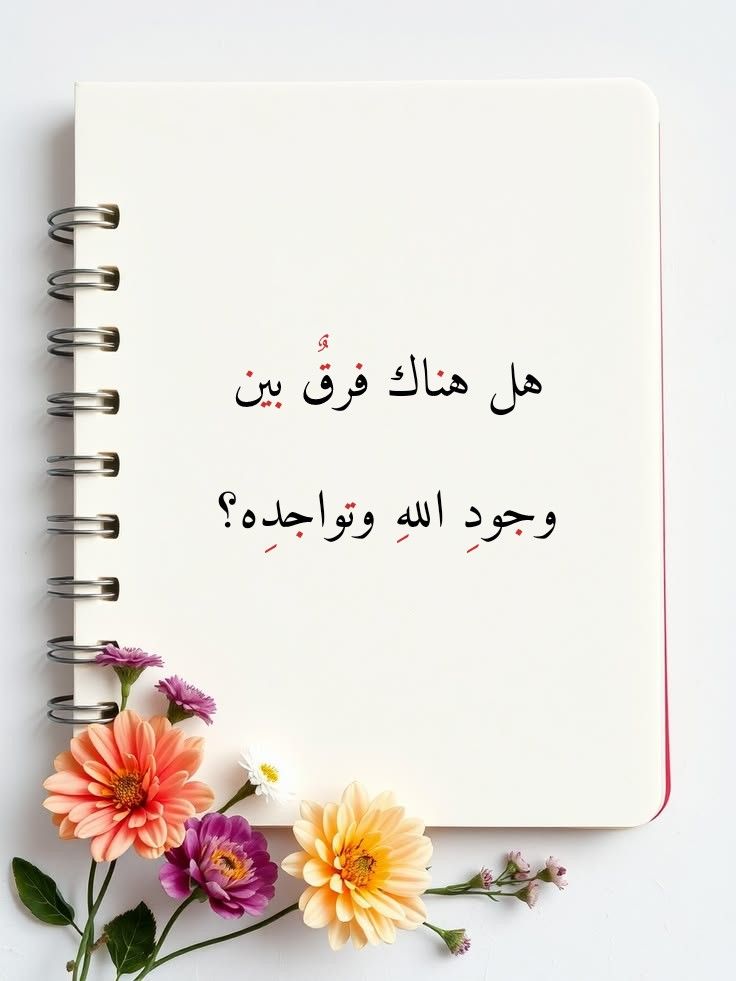 هل هناك فرقٌ بين
وجودِ اللهِ وتواجدِه؟